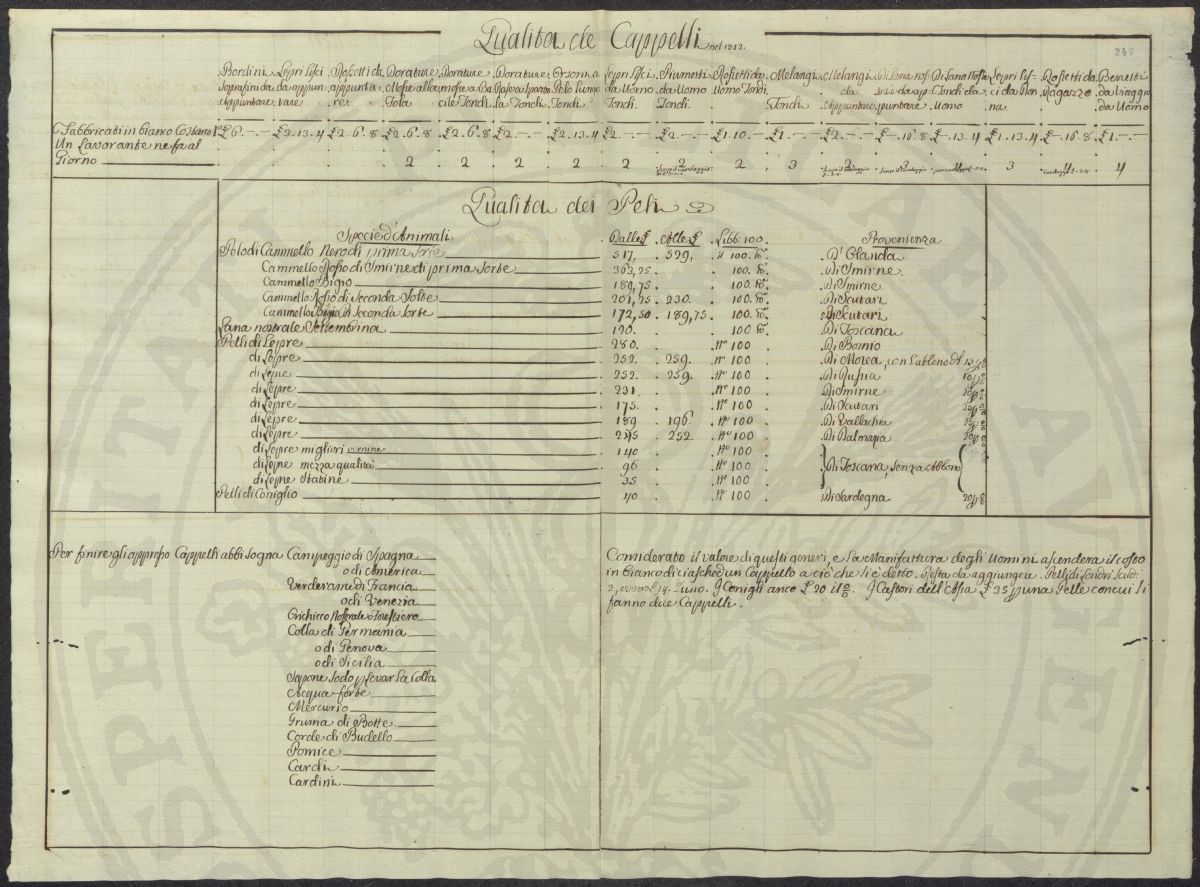 Qualita de Cappelli nel 1812.
247
Bordini Lepri Lisci Rosetti da Dorature Dorature Dorature Orsonna Lepri Lisci Piumetti Rosetti da Melangi Melangi Di Lana nos= Di Lana Nosse Lepri Lis= Rosetti da Berretti
Soprafini da da appun= appunta= Mosse alla mosse a Ba Pelo Lungo da Uomo da Uomo Uomo Tondi. da Tondi da ci da Ragazzo da Viaggio
Appuntare tare re. Tola cile Tondi la Tondi. Tondi. Tondi. Tondi. Tondi. Appuntare. puntare Uomo na. da Uomo
Fabbricati in bianco Costano £ 6.-.- £ 2.13.4 £ 2.6.8 £ 2.6.8 £ 2.6.8 £ 2.-.- £ 2.13.4 £ 2.-.- £ 2.-.- £ 1.10.- £ 1.-.- £ 2.-.- £ -.16.8 £ -.13.4 £ 1.13.4 £ -.16.8 £ 1.-.-
Un Lavorante ne fa al
Giorno 2 2 2 2 2 2 2 3 2 3 4 3 4 4
Qualita dei Peli
Specie d'Animali Dalle £ Alle £ Libb: 100. Provenienza
Pelo di Cammello Nero di prima Sorte 517. 529. 100. D'Olanda
Cammello Rosso di Smirne di prima Sorte 363,25 100. Di Smirne
Cammello Bigio 189,75 100. Di Smirne
Cammello Rosso di Seconda Sorte 201,25 230. 100. Di Scutari
Cammello Bigio di Seconda Sorte 172,50 189,75 100. Di Scutari
Lana nostrale Settembrina 120. 100 Di Toscana
Pelli di Lepre 280. N° 100 Di Bosnio
di Lepre 252. 259. N° 100 Di Morea, con l'abbono del 15 p%
di Lepre 252. 259. N° 100 Di Russia
di Lepre 231. N° 100 Di Smirne 20 p%
di Lepre 175. N° 100 Di Scutari 20 p%
di Lepre 189 196 N° 100 Di Vallachia
di Lepre 245 252. N° 100 Di Dalmazia 20 p%
di Lepre migliori vernine 140 N° 100
di Lepre mezza qualità 96 N° 100 Di Toscana, senza Abbono
di Lepre Statine 35 N° 100
Pelli di Coniglio 40 N° 100 Di Sardegna 20 p%
Per finire gli appresso Cappelli abbisogna Campeggio di Spagna
o di America
Verderame di Francia
o di Venezia
Orichicco Nostrale o Forestiero
Colla di Germania
o di Genova
o di Sicilia
Sapone Sodo p levar La Colla
Acqua forte
Mercurio
Gruma di Botte
Corde di Budello
Pomice
Cardi
Cardini
Considerato il valore di questi generi, e la Manifattura degli Uomini ascendera il costo
in bianco di ciaschedun Cappello a ciò che si è detto. Resta da aggiungere. Pelli di Londri Scudi
2, ovvero £ 14. l'uno. I Conigli anco £ 20 il %. I Castori dell'Asia £ 35 p una Pelle con cui si
fanno due Cappelli.